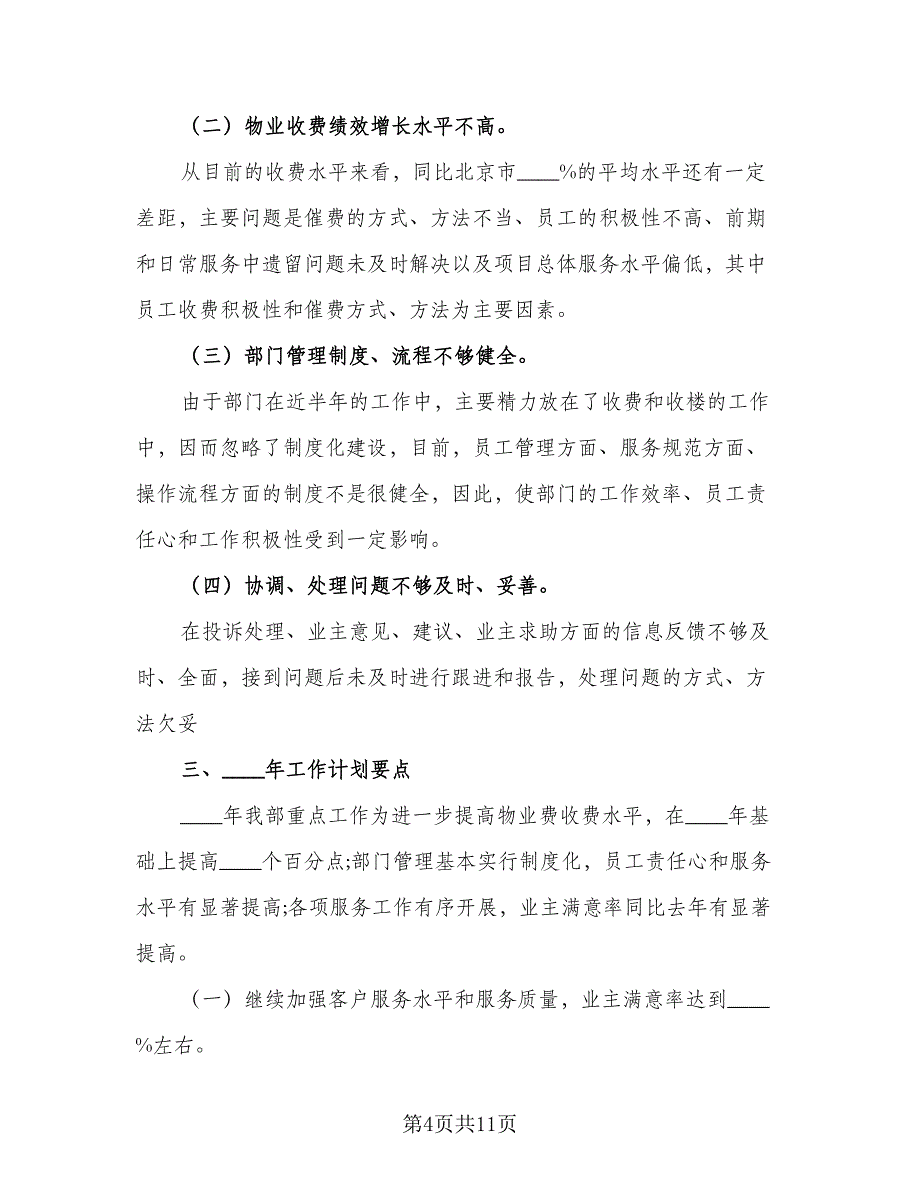 （二）物业收费绩效增长水平不高。
从目前的收费水平来看，同比北京市____%的平均水平还有一定
差距，主要问题是催费的方式、方法不当、员工的积极性不高、前期
和日常服务中遗留问题未及时解决以及项目总体服务水平偏低，其中
员工收费积极性和催费方式、方法为主要因素。
（三）部门管理制度、流程不够健全。
由于部门在近半年的工作中，主要精力放在了收费和收楼的工作
中，因而忽略了制度化建设，目前，员工管理方面、服务规范方面、
操作流程方面的制度不是很健全，因此，使部门的工作效率、员工责
任心和工作积极性受到一定影响。
（四）协调、处理问题不够及时、妥善。
在投诉处理、业主意见、建议、业主求助方面的信息反馈不够及
时、全面，接到问题后未及时进行跟进和报告，处理问题的方式、方
法欠妥
三、____年工作计划要点
____年我部重点工作为进一步提高物业费收费水平，在____年基
础上提高____个百分点;部门管理基本实行制度化，员工责任心和服务
水平有显著提高;各项服务工作有序开展，业主满意率同比去年有显著
提高。
（一）继续加强客户服务水平和服务质量，业主满意率达到____
%左右。
第4页共11页